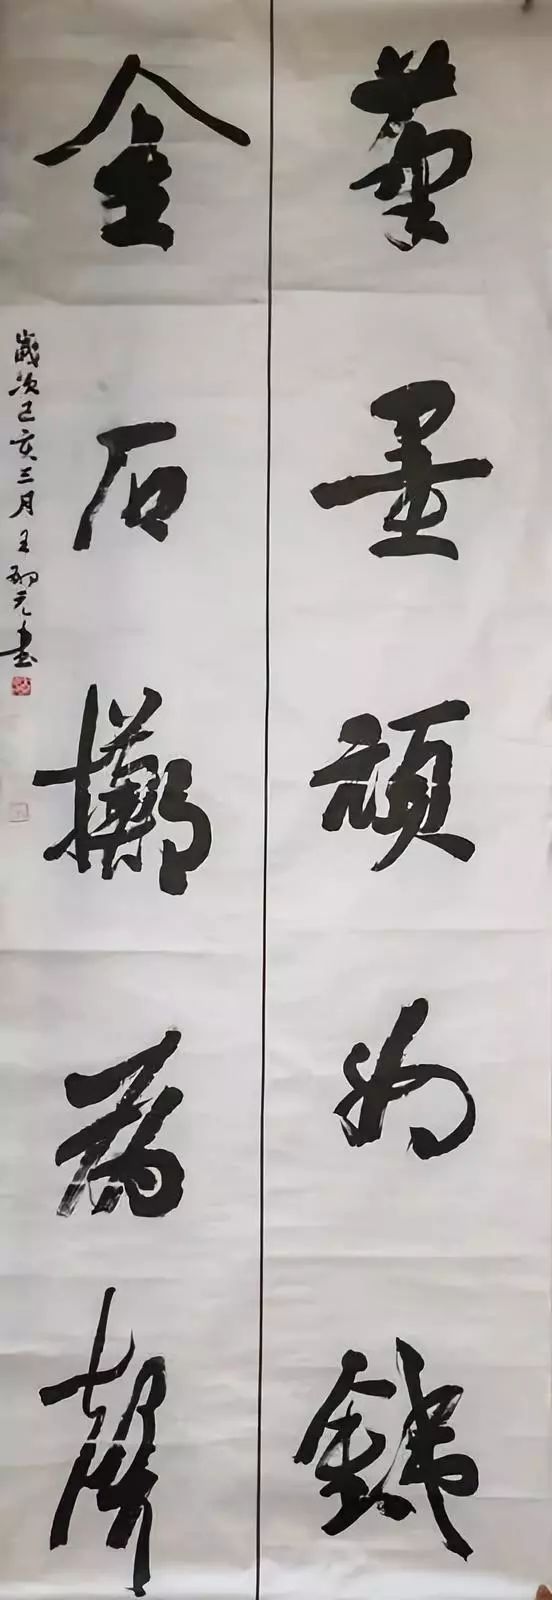 筆墨頑如銕
金石擲為聲
歲次己亥三月王元書